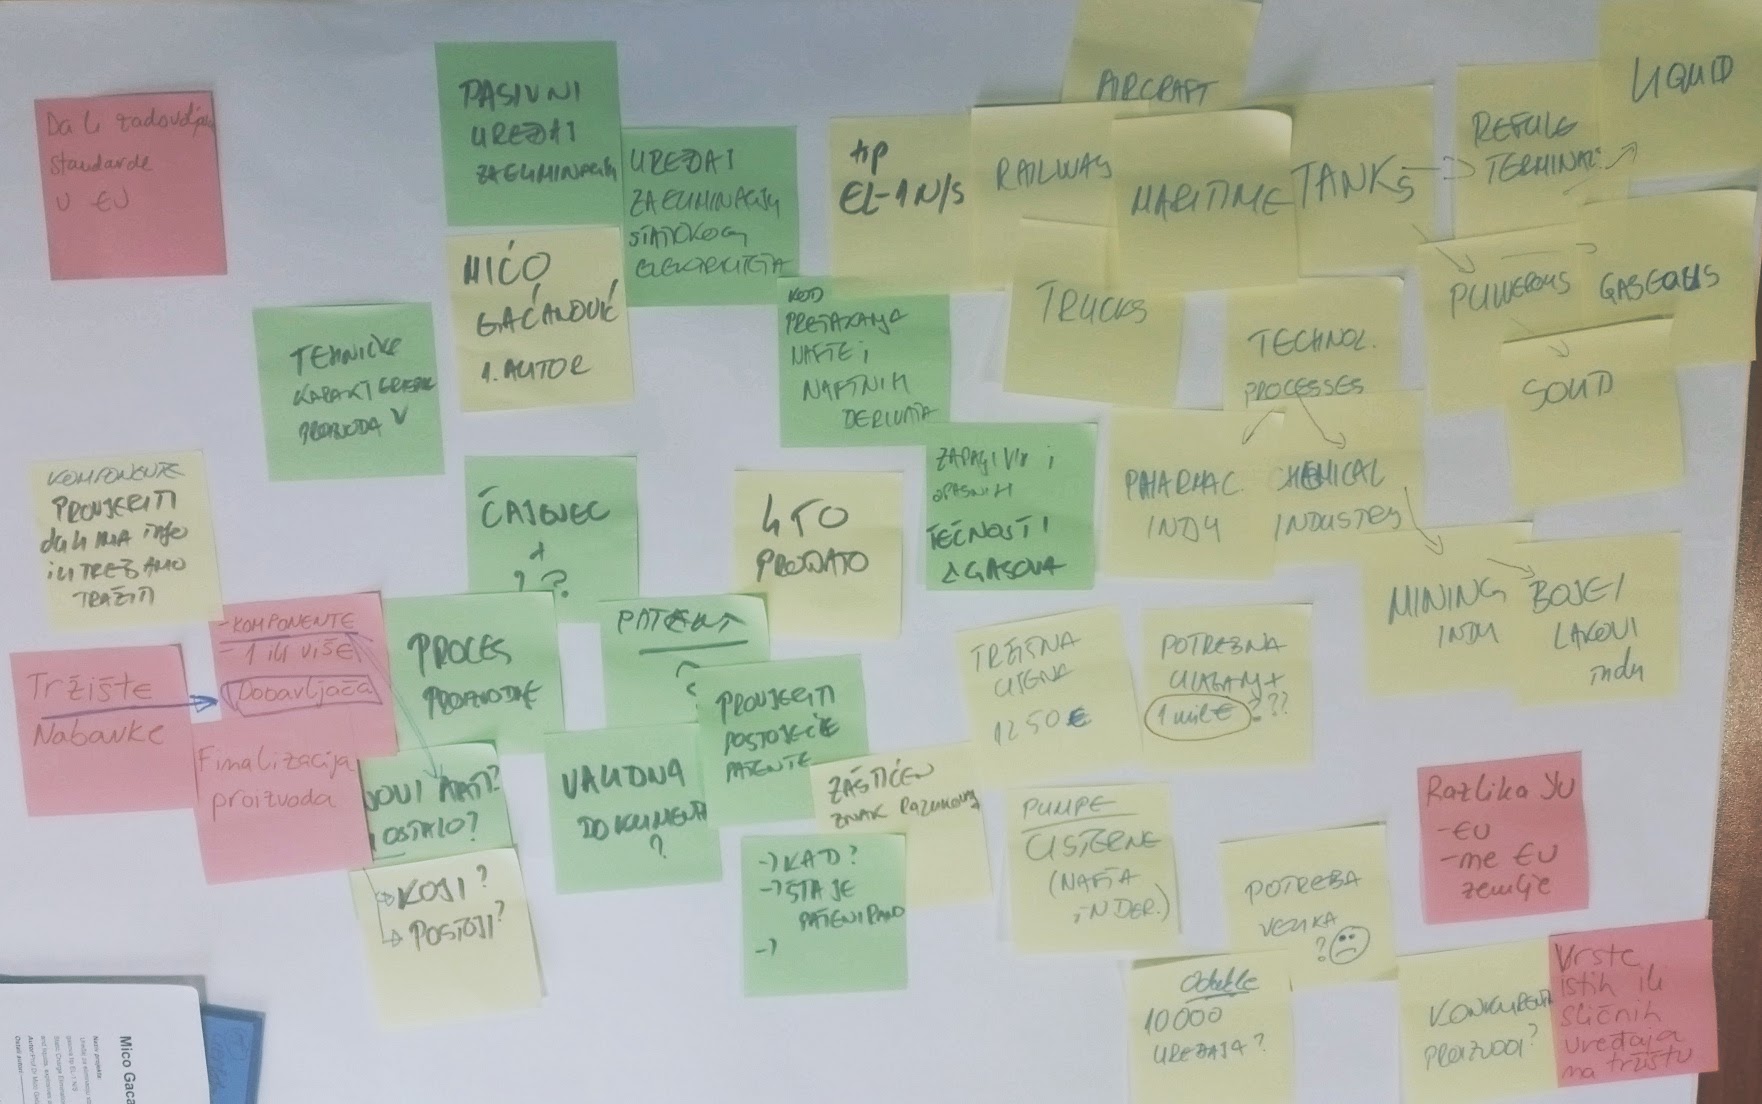 Da li zadovoljava
standarde
U EU
PASIVNI
UREĐAJI
ZA ELIMINACIJU
UREĐAJI
ZA ELIMINACIJU
STATIČKOG
ELEKTRICITETA
tip
EL-1 N/S
AIRCRAFT
RAILWAY
MARITIME
TANKS
TERMINAL
LIQUID
MIĆO
GAĆANOVIĆ
1. AUTOR
KOD
PRETAKANJA
NAFTE i
NAFTNIH
DERIVATA
TRUCKS
TECHNOL.
PROCESSES
GASEOUS
SOLID
TEHNIČKE
ZAPALJIVIH i
OPASNIH
TEČNOSTI
GASOVA
INDU
CHEMICAL
INDUSTRY
MINING
INDU
BOJE I
LAKOVI
indu
KOMPONENTE
PROVJERITI
da li IMA info
ili TREBAMO
TRAŽITI
ŠTO
PRODATO
- KOMPONENTE
- 1 ili više
Dobavljača
Tržište
Nabavke
Finalizacija
proizvoda
PROCES
PATENT
?
PROVJERITI
POSTOJEĆE
PATENTE
OSTALO?
KOJI?
POSTOJI?
VALIDNA
?
ZAŠTIĆEN
ZNAK
-> KAD?
-> ŠTA JE
PATENTIRANO
->
TRŽIŠNA
CIJENA
1250 €
POTREBNA
ULAGANJA
1 mil € ???
PUMPE
CISTERNE
(NAFTA
DER.)
POTREBA
VELIKA
?
Odakle
10 000
UREĐAJA?
Razlika YU
- EU
- ne EU
zemlje
KONKURENTNI
PROIZVODI?
Vrste
istih ili
sličnih
uređaja
na tržištu
Mico Gaca